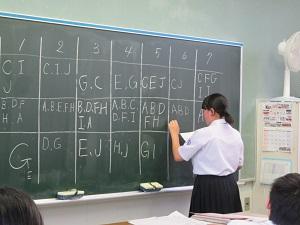 1 2 3 4 5 6 7
C I J
C.I.J
G.C
E.G
CEJ
CJ
C.F.G
I J
B.D.F
H A
A.B.E.F.H
B.D.F.H
I A
A.B.C.
D.F.I
A B D
F H
A B D
G
D,G
E.J
H.J
G I